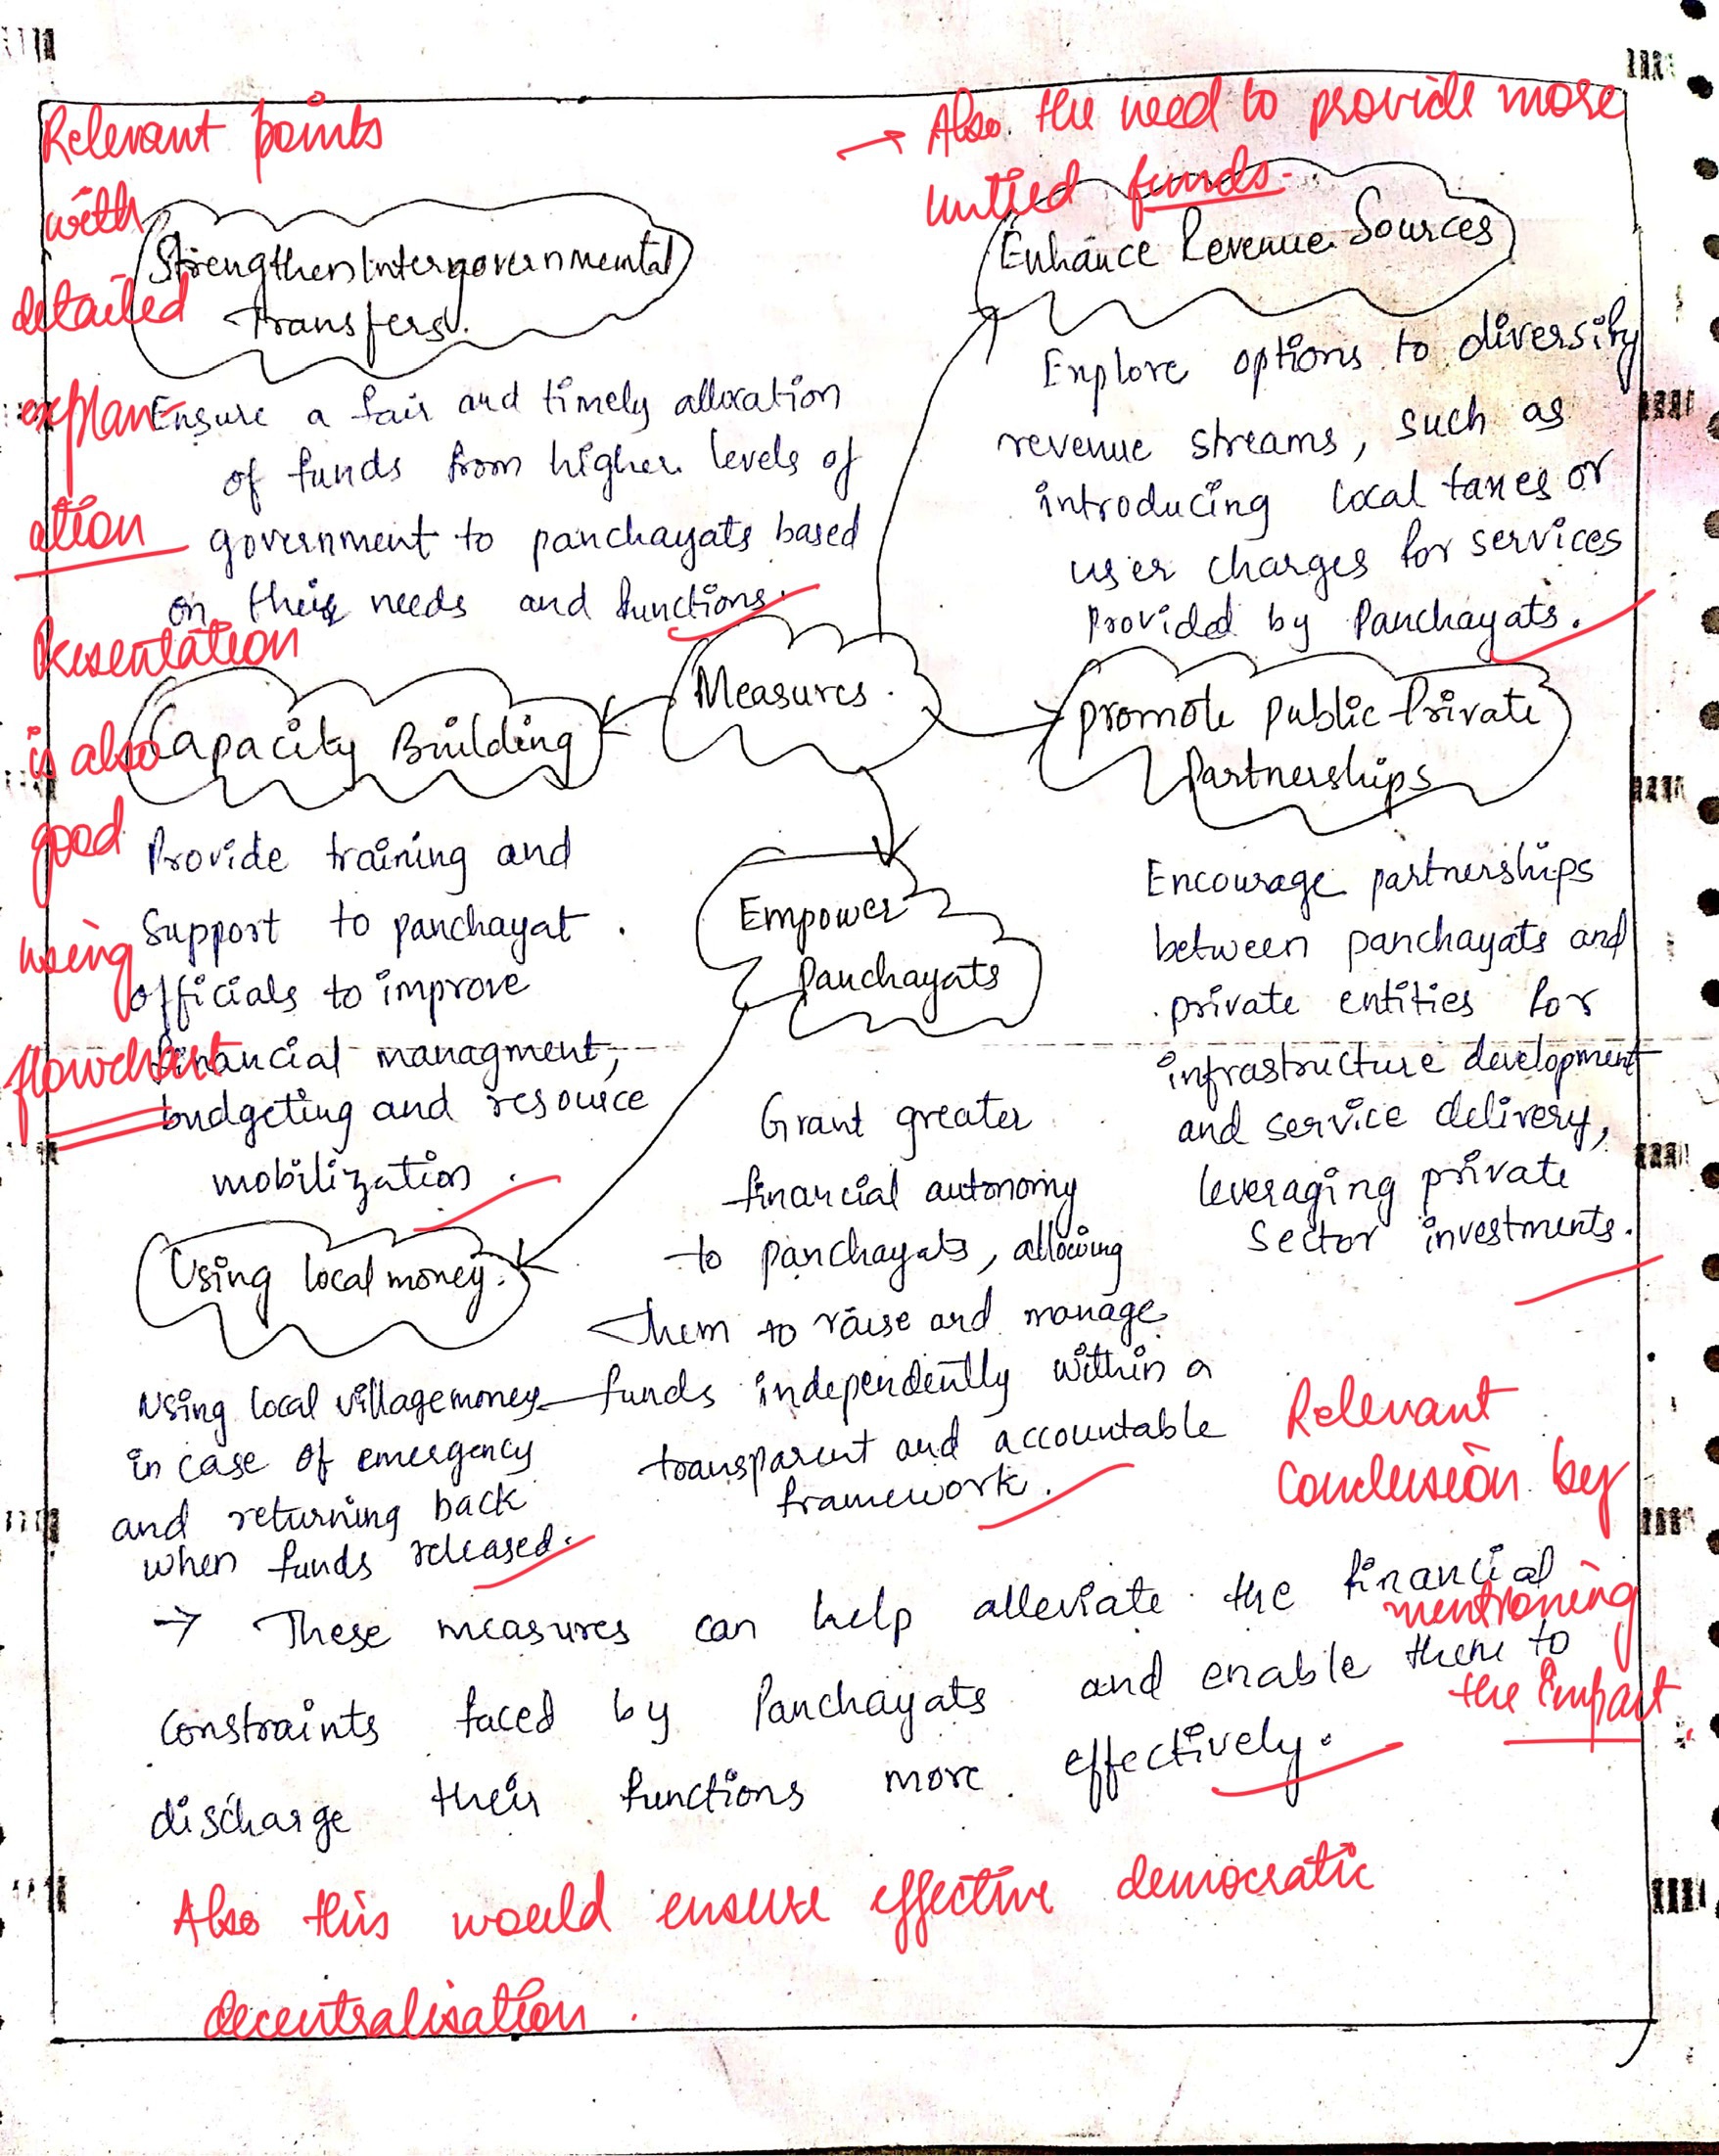 Relevant points
with
detailed
explan-
ation
Presentation
is also
good
using
flowchart
→ Also the need to provide more
untied funds.
Strengthen Intergovernmental
Transfers.
Ensure a fair and timely allocation
of funds from higher levels of
government to panchayats based
on their needs and functions.
Enhance Revenue Sources
Explore options to diversify
revenue streams, such as
introducing local taxes or
user charges for services
provided by Panchayats.
Measures.
Capacity Building
Provide training and
Support to panchayat
officials to improve
financial managment,
budgeting and resource
mobilization.
promote Public Private
Partnerships
Encourage partnerships
between panchayats and
private entities for
infrastructure development
and service delivery,
leveraging private
Sector investments.
Empower
Panchayats
Grant greater
financial autonomy
to panchayats, allowing
them to raise and manage
funds independently within a
transparent and accountable
framework.
Using local money.
Using local village money
in case of emergency
and returning back
when funds released.
Relevant
Conclusion by
mentioning
the impact.
→ These measures can help alleviate the financial
constraints faced by Panchayats and enable them to
discharge their functions more effectively.
Also this would ensure effective democratic
decentralisation.